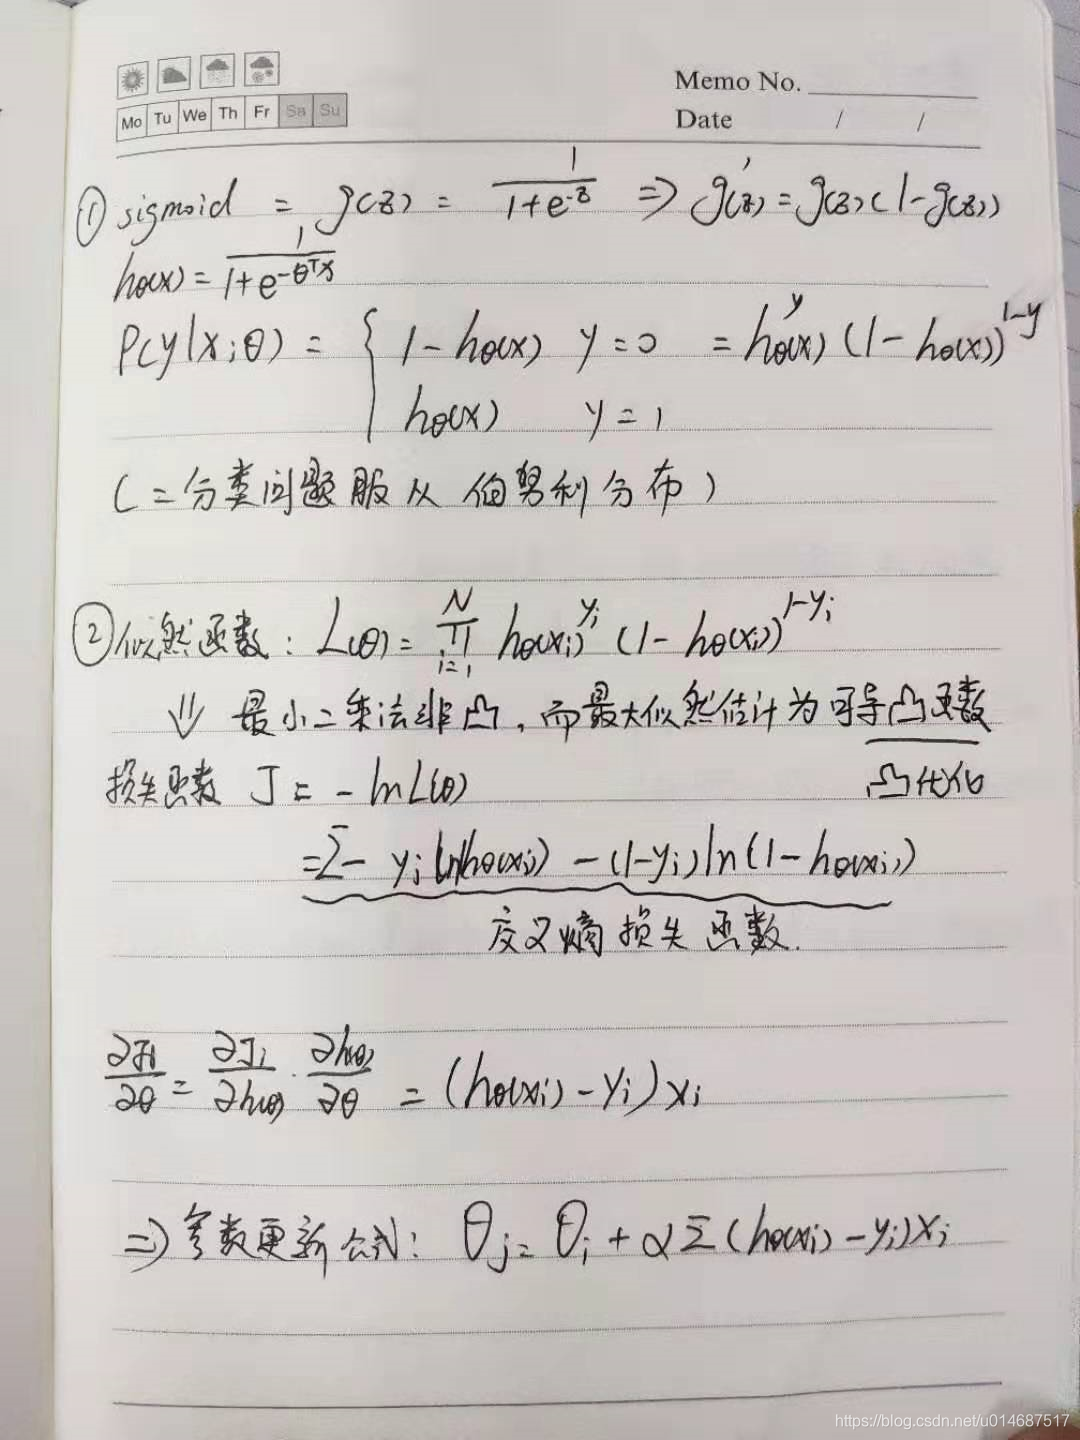 Memo No.
Mo Tu We Th Fr Sa Su
Date / /
① sigmoid = g(z) = 1/(1+e^-z) ⇒ g'(z) = g(z)(1-g(z))
hθ(x) = 1/(1+e^-θᵀx)
P(y|x;θ) = { 1-hθ(x) y=0 = hθ(x)^y (1-hθ(x))^1-y
hθ(x) y=1
(二分类问题服从伯努利分布)
② 似然函数: L(θ) = ∏_{i=1}^N hθ(xi)^yi (1-hθ(xi))^1-yi
⇓ 最小二乘法非凸,而最大似然估计为可导凸函数
损失函数 J = -lnL(θ) 凸优化
=Σ- yi ln(hθ(xi)) - (1-yi)ln(1-hθ(xi))
交叉熵损失函数.
∂Ji/∂θ = ∂Ji/∂h(θ) · ∂h(θ)/∂θ = (hθ(xi)-yi)xi
⇒ 参数更新公式: θj = θj + α Σ(hθ(xi)-yi)xi
https://blog.csdn.net/u014687517